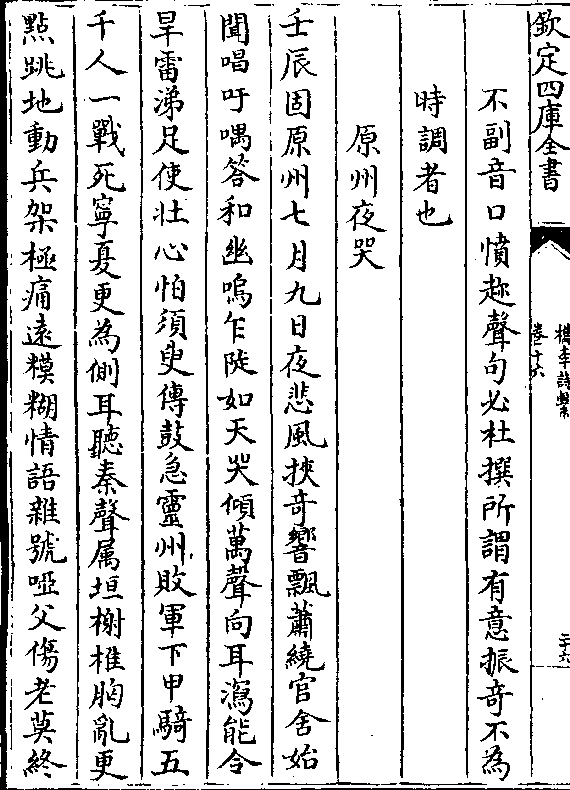 欽定四庫全書
檇李詩繫
卷十六
二十六
不副音口憤趂聲句必杜撰所謂有意振奇不為
時調者也
原州夜哭
壬辰固原州七月九日夜悲風挾奇響飄蕭繞官舍始
聞唱吁喁答和幽嗚乍陡如天哭傾萬聲向耳瀉能令
旱雷涕足使壯心怕須臾傳鼓急靈州敗軍下甲騎五
千人一戰死寧夏更為側耳聽秦聲属垣榭椎胸亂更
點跳地動兵架極痛遠糢糊情語雜號啞父傷老莫終